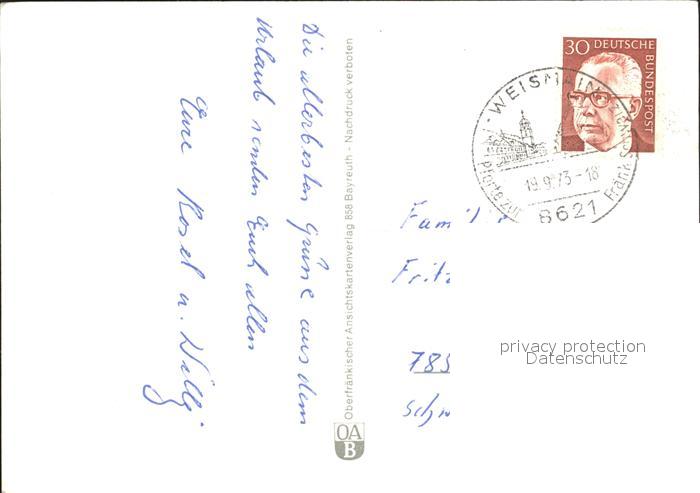 Die allerbesten Grüsse aus dem
Urlaub senden Euch allen
Eure Rosel u. Willy
Oberfränkischer Ansichtskartenverlag 858 Bayreuth - Nachdruck verboten
OA
B
30 DEUTSCHE
BUNDESPOST
WEISMAIN
Pforte zur
Fränk.
19.9.73-18
8621
Famil
Fritz
785
privacy protection
Datenschutz